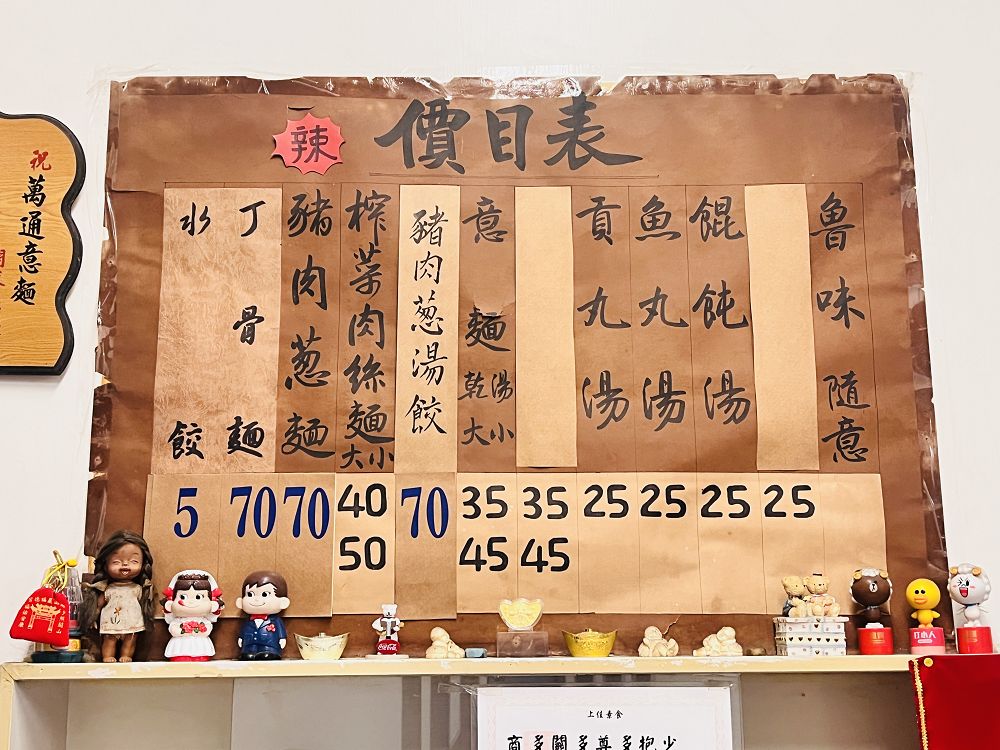 價目表
辣
魯味 隨意
餛飩湯
魚丸湯
貢丸湯
意麵 乾湯 大小
豬肉葱湯餃
榨菜肉絲麵 大小
豬肉葱麵
丁骨麵
水餃
5 70 70 40 70 35 35 25 25 25 25
50 45 45
祝
萬通意麵
Coca-Cola
上佳素食